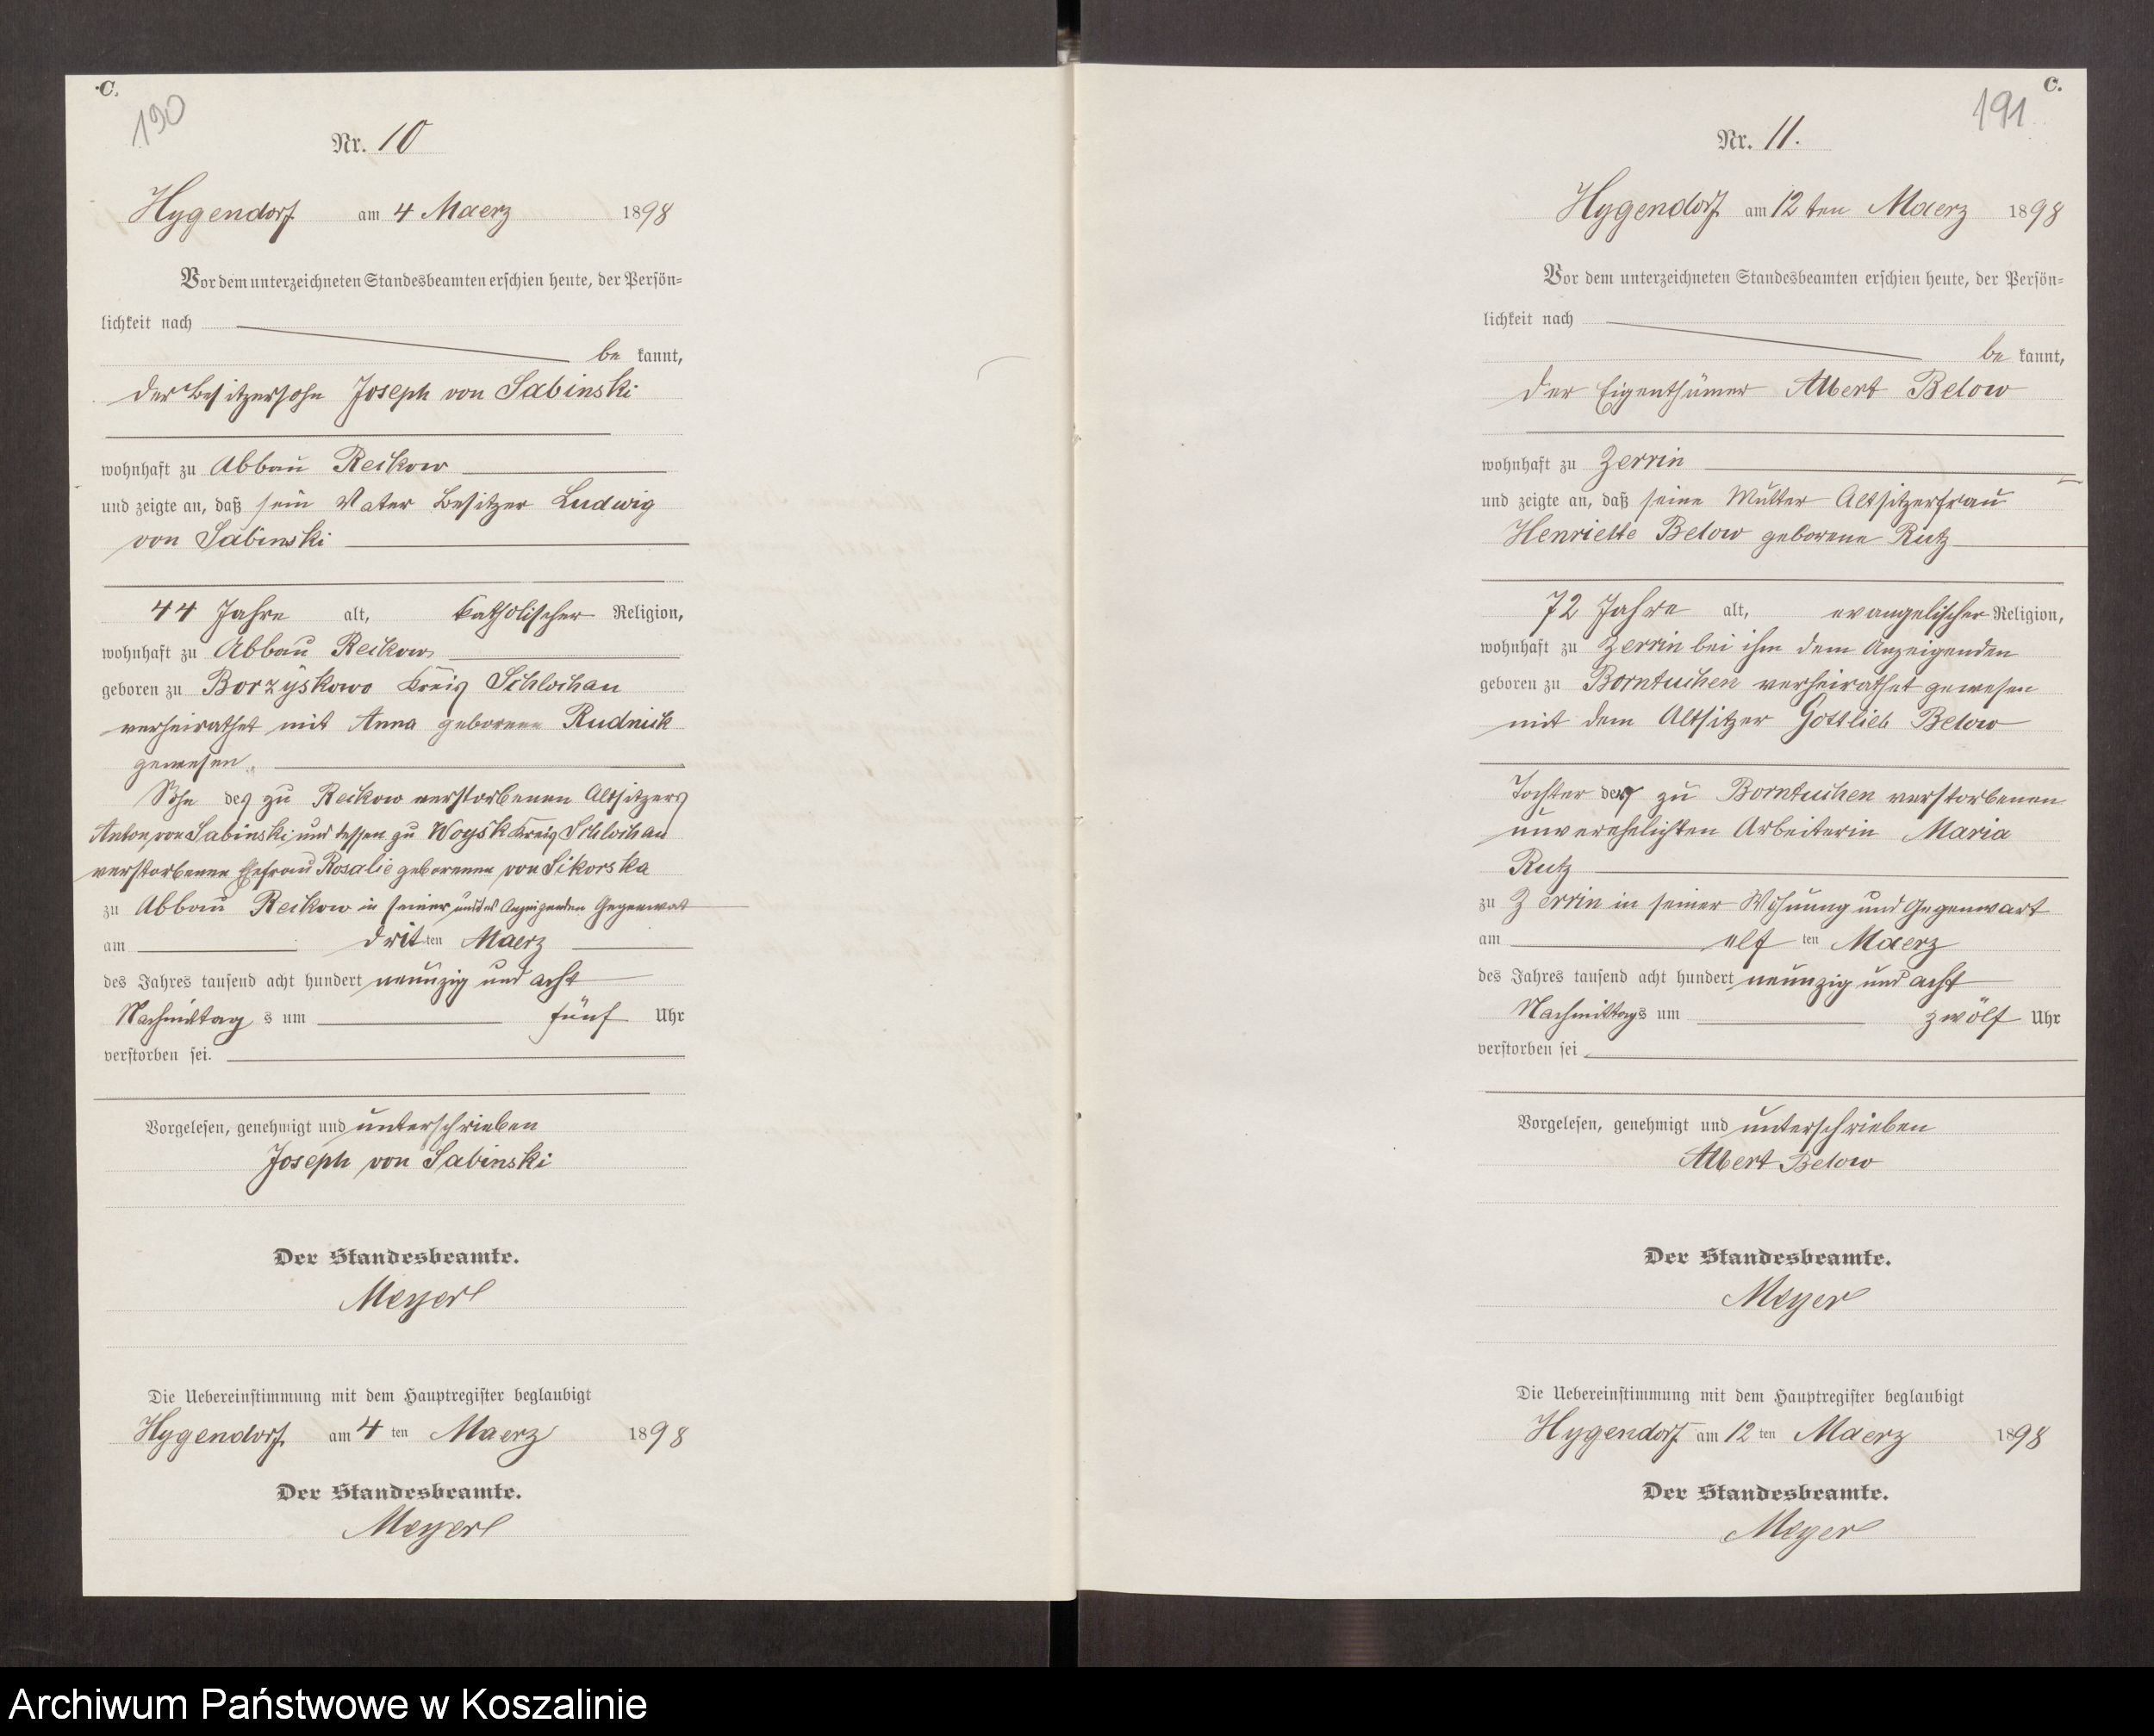 C.
190
Nr. 10
Hygendorf am 4 Maerz 1898
Vor dem unterzeichneten Standesbeamten erschien heute, der Persön-
lichkeit nach
be kannt,
der Besitzersohn Joseph von Sabinski
wohnhaft zu Abbau Reckow
und zeigte an, daß sein Vater Besitzer Ludwig
von Sabinski
44 Jahre alt, katholischer Religion,
wohnhaft zu Abbau Reckow
geboren zu Borzyskowo Kreis Schlochau
verheirathet mit Anna geborene Rudnick
gewesen.
Sohn des zu Reckow verstorbenen Altsitzers
Anton von Sabinski und dessen zu Woysk Kreis Schlochau
verstorbenen Ehefrau Rosalie geborenen von Sikorska
zu Abbau Reckow in seiner und des Anzeigenden Gegenwart
am dritten Maerz
des Jahres tausend acht hundert neunzig und acht
Nachmittag s um fünf Uhr
verstorben sei.
Vorgelesen, genehmigt und unterschrieben
Joseph von Sabinski
Der Standesbeamte.
Meyer
Die Uebereinstimmung mit dem Hauptregister beglaubigt
Hygendorf am 4 ten Maerz 1898
Der Standesbeamte.
Meyer
C.
191
Nr. 11.
Hygendorf am 12 ten Maerz 1898
Vor dem unterzeichneten Standesbeamten erschien heute, der Persön-
lichkeit nach
be kannt,
der Eigenthümer Albert Below
wohnhaft zu Zerrin
und zeigte an, daß seine Mutter Altsitzerfrau
Henriette Below geborene Rutz
72 Jahre alt, evangelischer Religion,
wohnhaft zu Zerrin bei ihm dem Anzeigenden
geboren zu Borntuchen verheirathet gewesen
mit dem Altsitzer Gottlieb Below
Tochter der zu Borntuchen verstorbenen
unverehelichten Arbeiterin Maria
Rutz
zu Zerrin in seiner Wohnung und Gegenwart
am elf ten Maerz
des Jahres tausend acht hundert neunzig und acht
Nachmittags um zwölf Uhr
verstorben sei
Vorgelesen, genehmigt und unterschrieben
Albert Below
Der Standesbeamte.
Meyer
Die Uebereinstimmung mit dem Hauptregister beglaubigt
Hygendorf am 12 ten Maerz 1898
Der Standesbeamte.
Meyer
Archiwum Państwowe w Koszalinie